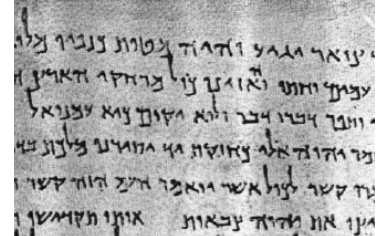 צואר יגיע והיה מטות כנפיו מלו
עמים וחתו והאזינו כול מרחקי הארץ
דברו דבר ולוא יקום כיא עמנואל
מר יהוה אלי כחזקת יד יסירני מלכת
קשר לכול אשר יואמר העם הזה קשר
את יהוה צבאות אותו תקדישו